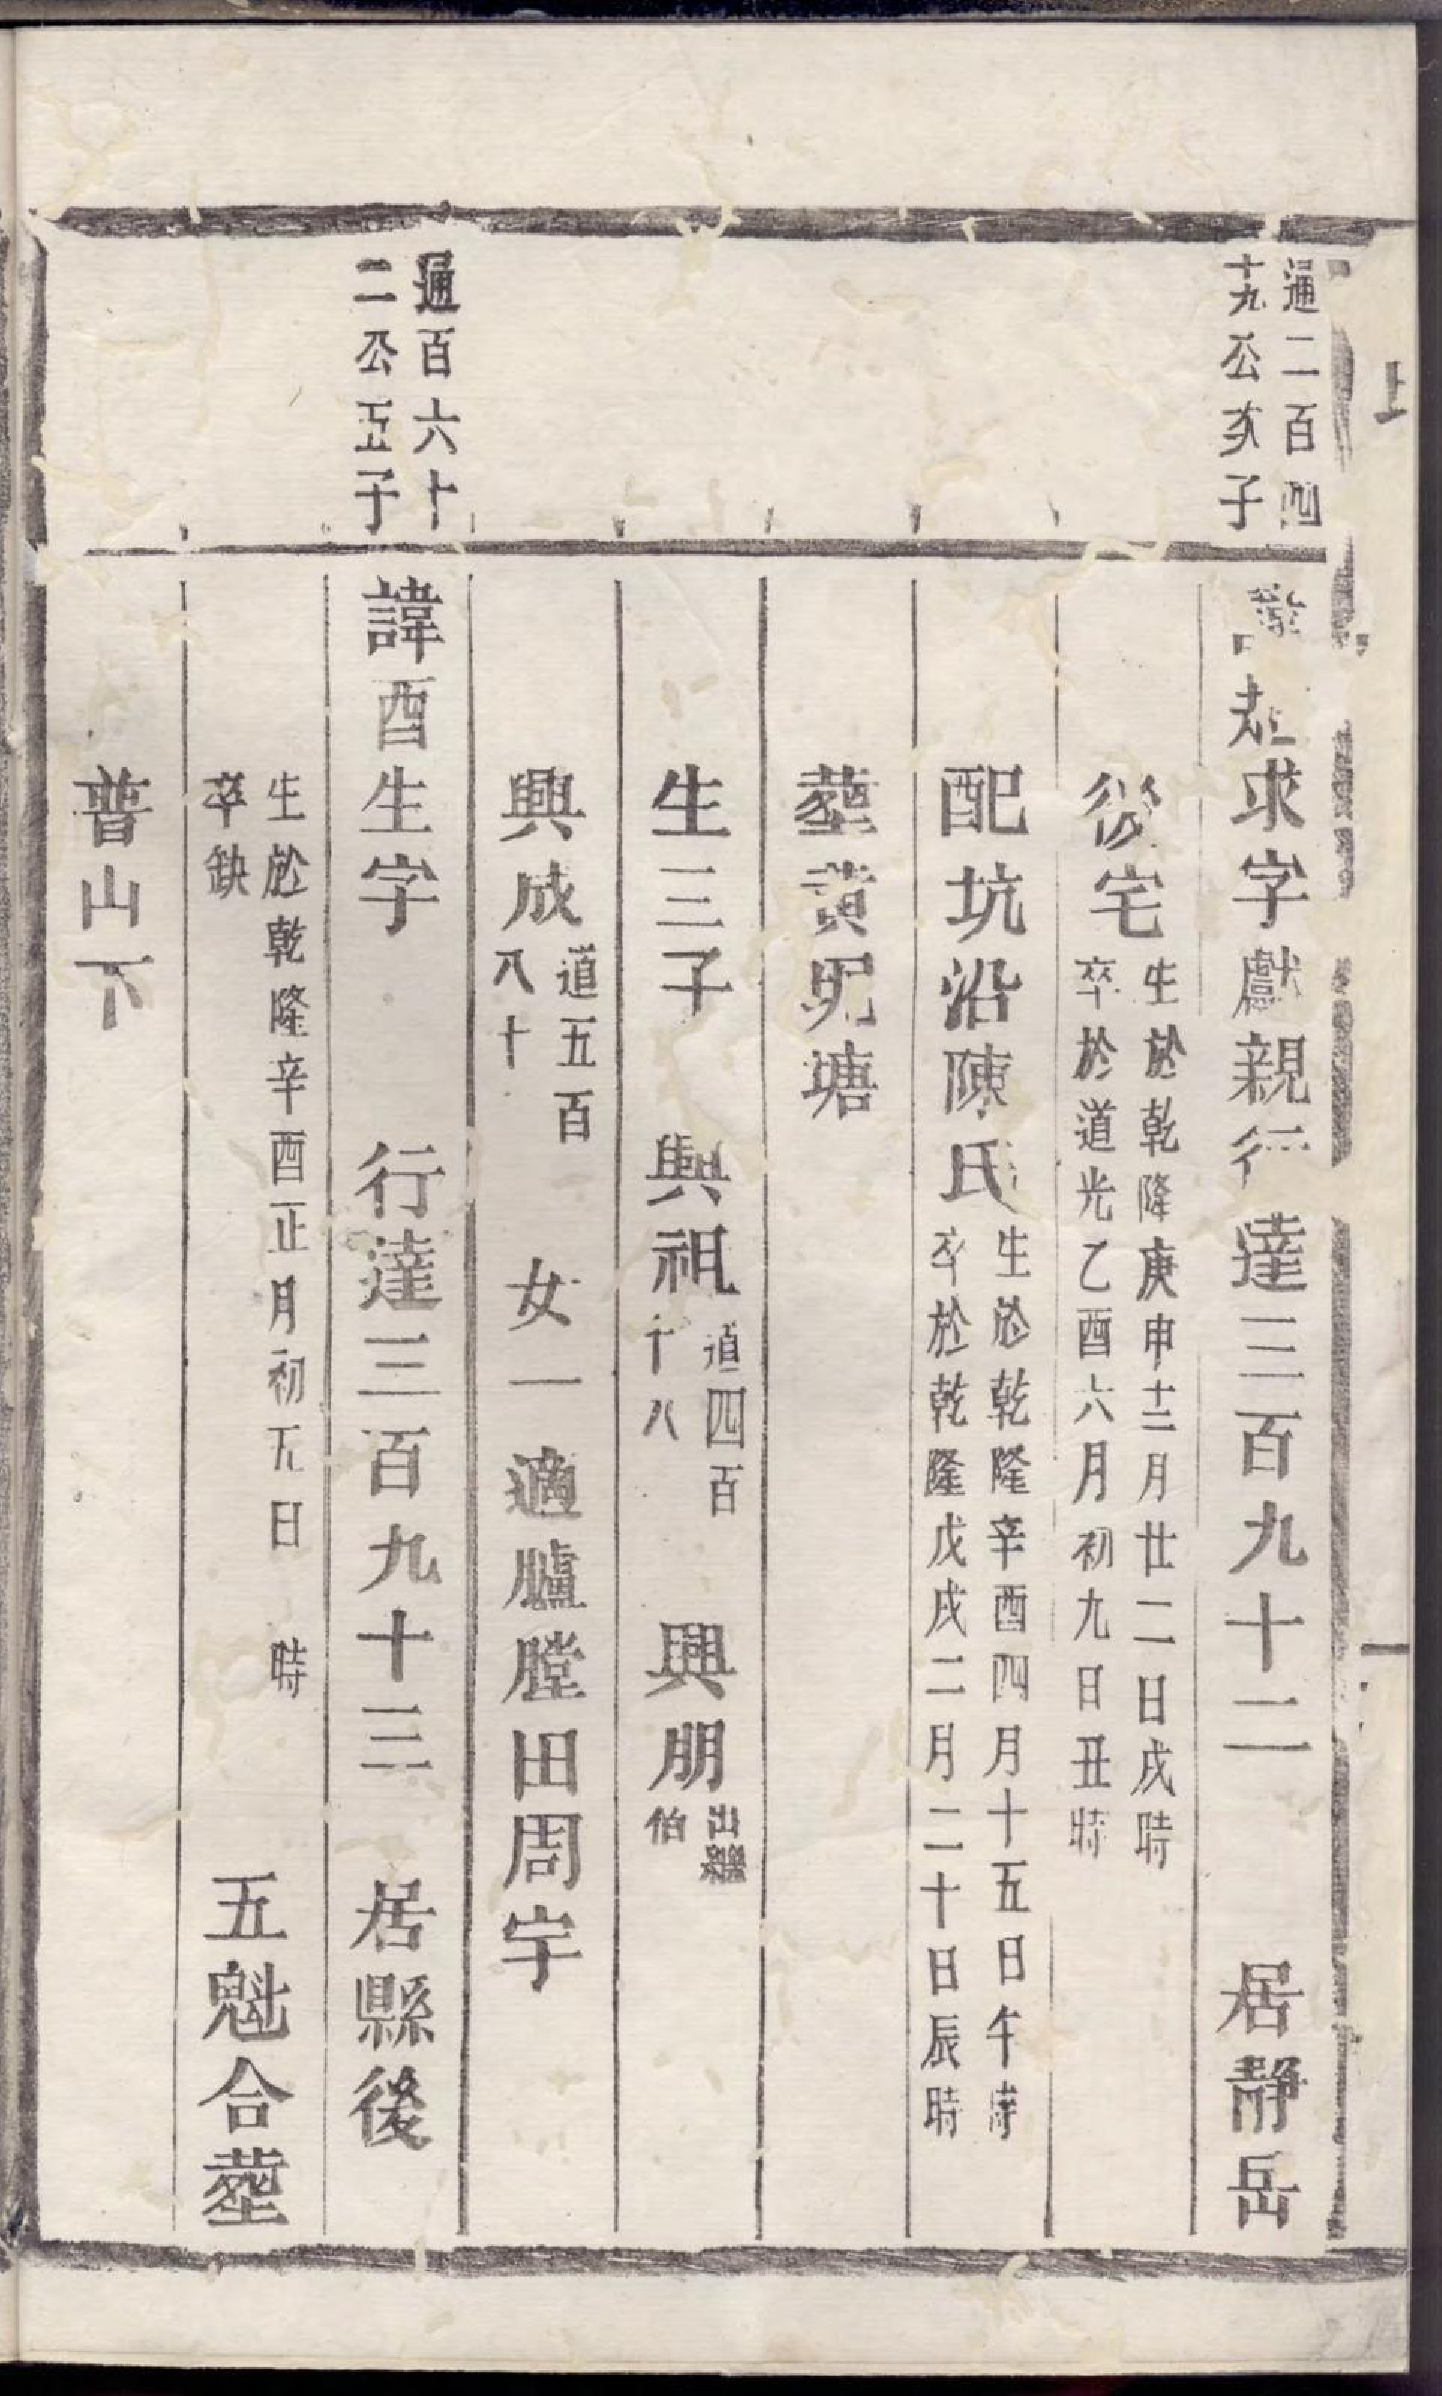 上
一
通二百四
十九公亥子
求字獻親行達三百九十二 居靜岳
後宅
生於乾隆庚申十二月廿二日戌時
卒於道光乙酉六月初九日丑時
配坑沿陳氏
生於乾隆辛酉四月十五日午時
卒於乾隆戊戌二月二十日辰時
葬黃坭塘
生三子 興祖 道四百十八 興朋 出繼伯
興成 道五百八十 女一適臚膛田周宇
通百六十
二公五子
諱酉生字 行達三百九十三 居縣後
生於乾隆辛酉正月初五日 時
卒缺
五魁合葬
普山下